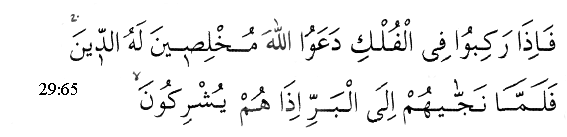 فَاِذَا رَكِبُوا فِى الْفُلْكِ دَعَوُا اللهَ مُخْلِصٖينَ لَهُ الدّٖينَۚ
29:65 فَلَمَّا نَجّٰيهُمْ اِلَى الْبَرِّ اِذَا هُمْ يُشْرِكُونَۙ